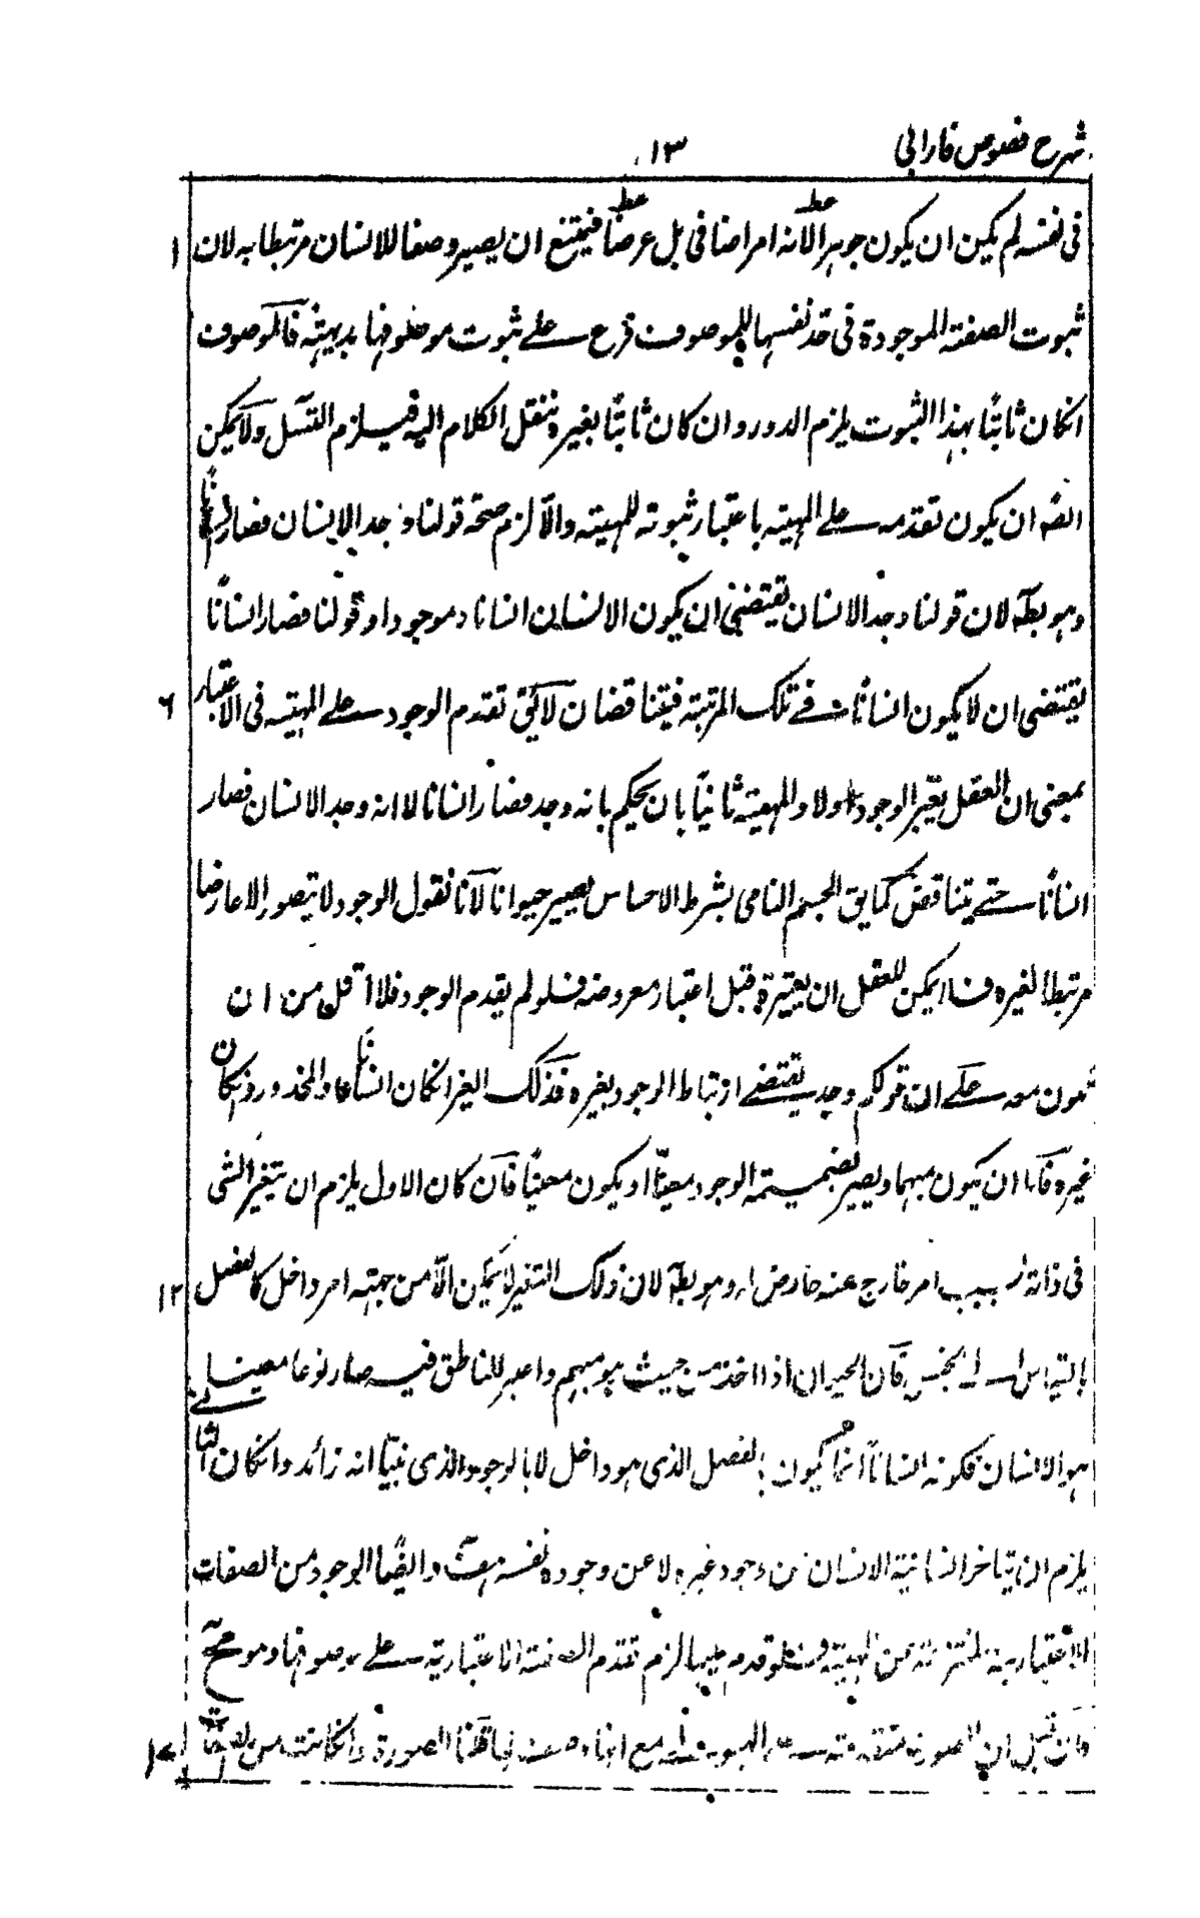 شرح فصوص فارابی
١٣
فی نفسه لم یکن ان یکون جوهرا لانه امر اضافی بل عرضا فیمتنع ان یصیر وصفا للانسان مرتبطا به لان
١
ثبوت الصفة الموجودة فی حد نفسها للموصوف فرع علی ثبوت موصوفها بدیهة فالموصوف
انکان ثابتًا بهذا الثبوت یلزم الدور وان کان ثابتًا بغیره ننقل الکلام الیه فیلزم التسل ولا یمکن
ایضً ان یکون تقدمه علی المهیة باعتبار ثبوته للمهیة والا لزم صحة قولنا وجد الانسان فصار
وهو بط لان قولنا وجد الانسان یقتضی ان یکون الانسان انسانا وموجودا وقولنا فصار انسانًا
یقتضی ان لا یکون انسانًا فی تلک المرتبة فیتناقضان لا یق تقدم الوجود علی المهیة فی الاعتبار
٦
بمعنی ان العقل یعتبر الوجود اولا والمهیة ثانیًا بان یحکم بانه وجد فصار انسانا لا انه وجد الانسان فصار
انسانًا حتی یتناقض کما یق الجسم النامی بشرط الاحساس یصیر حیوانا لانا نقول الوجود لا یتصور الا عارضا
مرتبطا لغیره فلا یمکن للعقل ان یعتبره قبل اعتبار معروضه فلو لم یقدم الوجود فلا اقل من ان
یکون معه علی ان قولکم وجد یقتضی ارتباط الوجود بغیره فذلک الغیر انکان انسانًا عاد المحذور وانکان
غیره فاما ان یکون مبهما ویصیر بضمیمة الوجود معینًا او یکون معینًا فان کان الاول یلزم ان یتغیر الشی
فی ذاته بسبب امر خارج عنه عارض له وهو بط لان ذلک التغیر لا یمکن الا من جهة امر داخل کالفصل
١٢
بالقیاس الی الجنس فان الحیوان اذا اخذ من حیث هو مبهم واعبر للناطق فیه صار نوعا معینا
هو الانسان فکونه انسانًا انما یکون بالفصل الذی هو داخل لا بالوجود الذی بینا انه زائد وانکان الثا
یلزم ان یتاخر انسانیة الانسان عن وجود غیره لا عن وجوده نفسه هف وایضًا الوجود من الصفات
الاعتباریة المنتزعة من المهیة فلو قدم علیها لزم تقدم الصفة الاعتباریة علی موصوفها وهو مح
فان قیل ان الصورة متقدمة علی الهیولی مع انها صفة لها قلنا الصورة وانکانت من
١٧